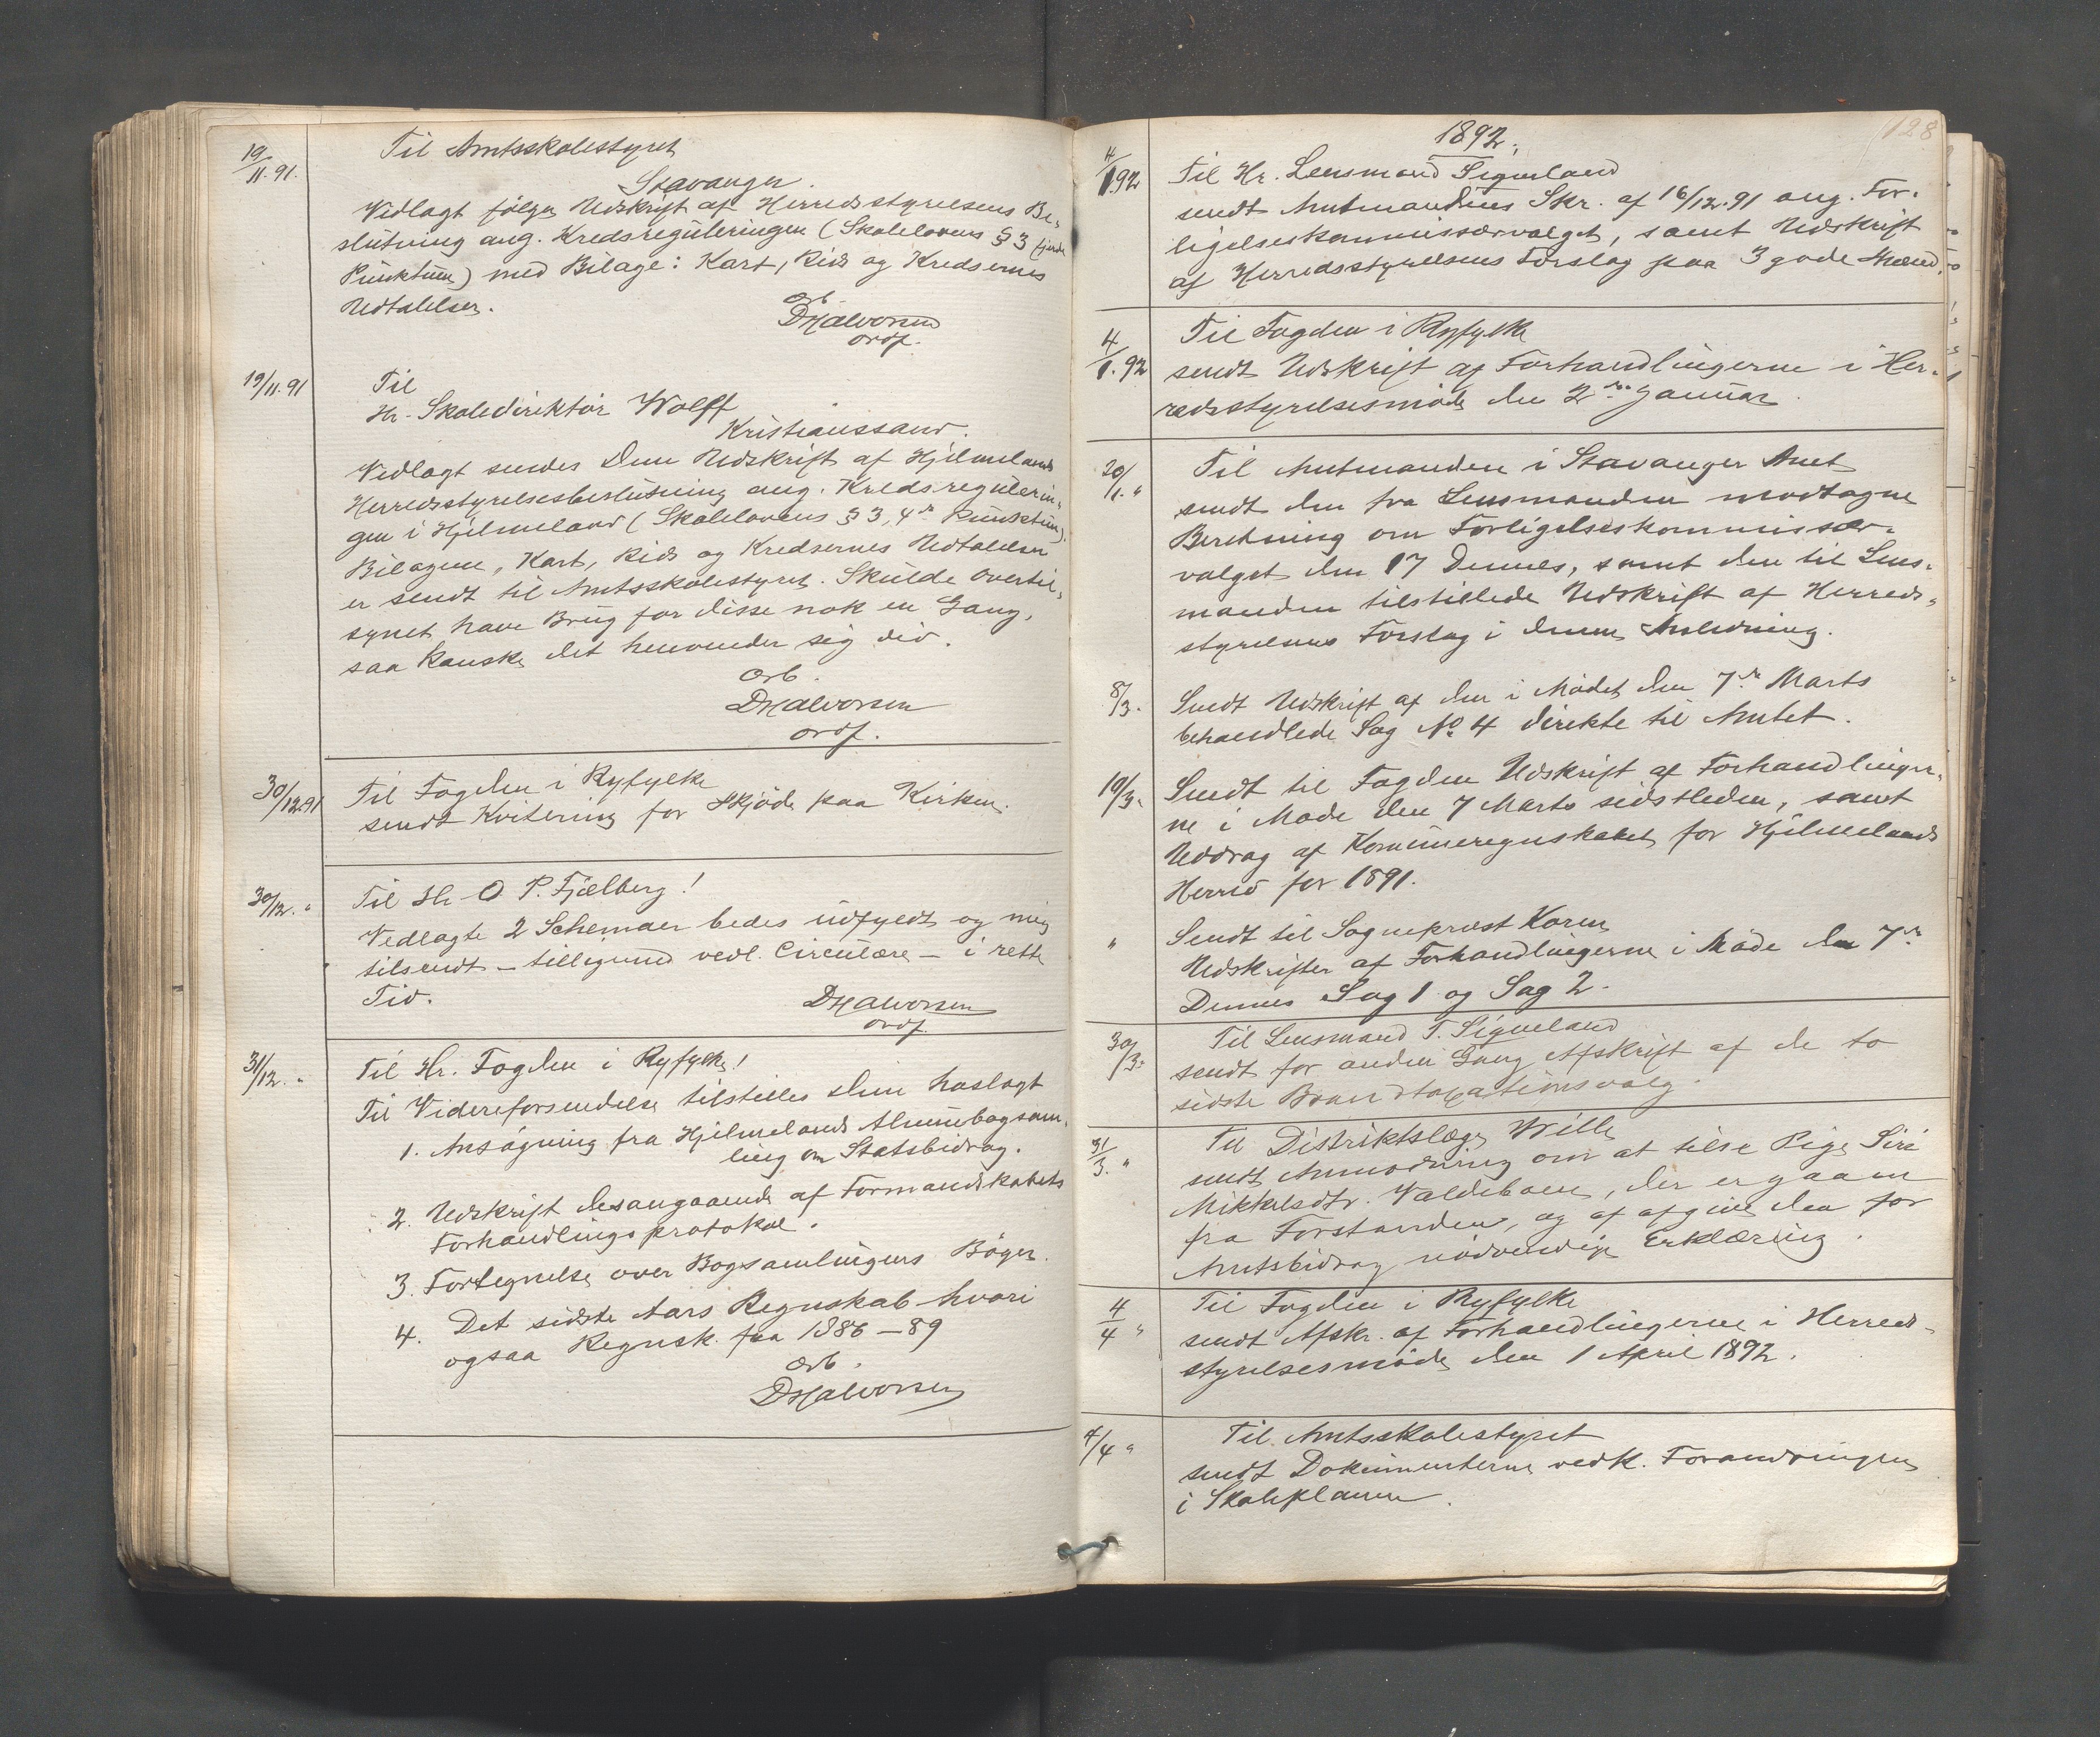 19/11.91.
Til Amtsskolestyret
Stavanger.
Vedlagt følger Udskrift af Herredsstyrelsens Be-
slutning ang. Kredsreguleringen (Skolelovens § 3 fjerde
Punktum) med Bilage: Kart, Rids og Kredsernes
Udtalelser.
Ærb.
DHalvorsen
ordf.
19/11.91
Til
Hr. Skoledirektør Wolff
Kristianssand.
Vedlagt sendes Dem Udskrift af Hjelmelands
Herredsstyrelsesbeslutning ang. Kredsregulerin-
gen i Hjelmeland (Skolelovens § 3, 4de Punktum).
Bilagene, Kart, Rids og Kredsernes Udtalelser
er sendt til Amtsskolestyret. Skulde Overtil-
synet have Brug for disse nok en Gang,
saa kanske det henvender sig did.
Ærb.
DHalvorsen
ordf.
30/12.91
Til Fogden i Ryfylke
sendt Kvitering for Skjøde paa Kirken.
30/12. "
Til Hr O. P. Fjælberg!
Vedlagte 2 Schemaer bedes udfyldt og mig
tilsendt - tilligemed vedl. Circulære - i rette
Tid.
DHalvorsen
ordf.
31/12. "
Til Hr. Fogden i Ryfylke!
Til Videreforsendelse tilstilles Dem hoslagt
1. Ansøgning fra Hjelmelands Almuebogsam-
ling om Statsbidrag.
2. Udskrift desangaaende af Formandskabets
Forhandlingsprotokol.
3. Fortegnelse over Bogsamlingens Bøger.
4. Det sidste Aars Regnskab hvori
ogsaa Regnsk. fra 1886-89
Ærb.
DHalvorsen
128
1892.
4/1.92
Til Hr. Lensmand Sigmeland
sendt Amtmandens Skr. af 16/12.91 ang. For-
ligelseskommissærvalget, samt Udskrift
af Herredsstyrelsens Forslag paa 3 gode Mænd.
4/1.92
Til Fogden i Ryfylke
sendt Udskrift af Forhandlingerne i Her-
redsstyrelsesmøde den 2den Januar.
20/1. "
Til Amtmanden i Stavanger Amt
sendt den fra Lensmanden modtagne
Beretning om Forligelseskommissær-
valget den 17 Dennes, samt den til Lens-
manden tilstillede Udskrift af Herreds-
styrelsens Forslag i denne Anledning.
8/3.
Sendt Udskrift af den i Mødet den 7de Marts
behandlede Sag No 4 direkte til Amtet.
19/3.
Sendt til Fogden Udskrift af Forhandlinger-
ne i Møde den 7 Marts sidstleden, samt
Uddrag af Komuneregnskabet for Hjelmelands
Herred for 1891.
"
Sendt til Sogneprest Koren
Udskrifter af Forhandlingerne i Møde den 7de
Dennes Sag 1 og Sag 2.
30/3.
Til Lensmand T. Sigmeland
sendt for anden Gang Afskrift af de to
sidste Brandtaxationsvalg.
31/3. "
Til Distriktslæge Wille
sendt Anmodning om at tilse Pige Siri
Mikkelsdtr. Valdeboen, der er gaaen
fra Forstanden, og af afgive den for
Amtsbidrag nødvendige Erklæring.
4/4 "
Til Fogden i Ryfylke
sendt Afskr. af Forhandlingerne i Herreds-
styrelsesmøde den 1 April 1892.
4/4 "
Til Amtsskolestyret
sendt Dokumenterne vedk. Forandringen
i Skoleplanen.